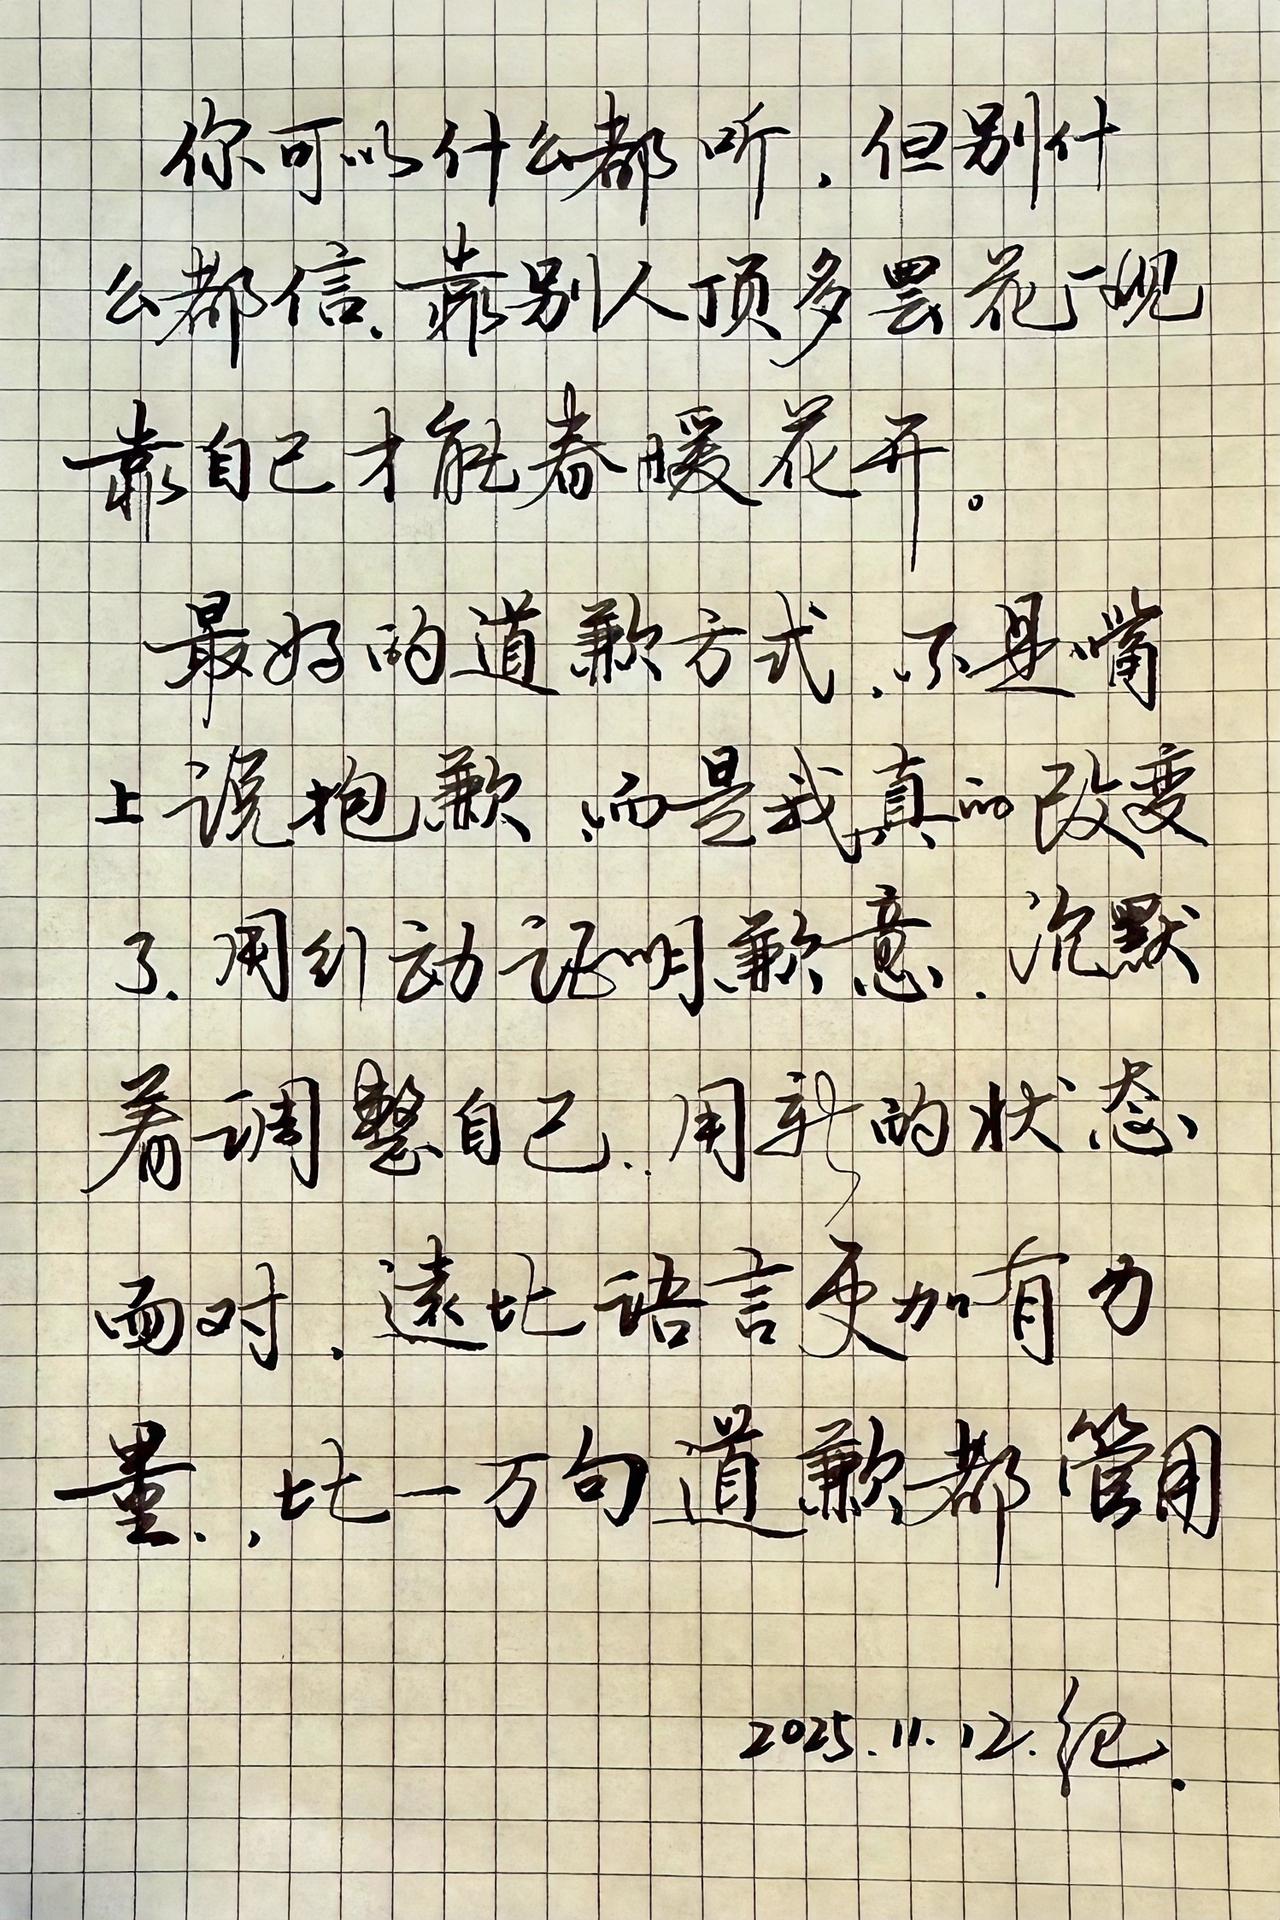 你可以什么都听,但别什
么都信、靠别人顶多昙花一现
靠自己才能春暖花开。
最好的道歉方式、不是嘴
上说抱歉、而是我真的改变
了、用行动证明歉意.沉默
着调整自己、用新的状态
面对、远比语言更加有力
量、比一万句道歉都管用
2025.11.12.纪.